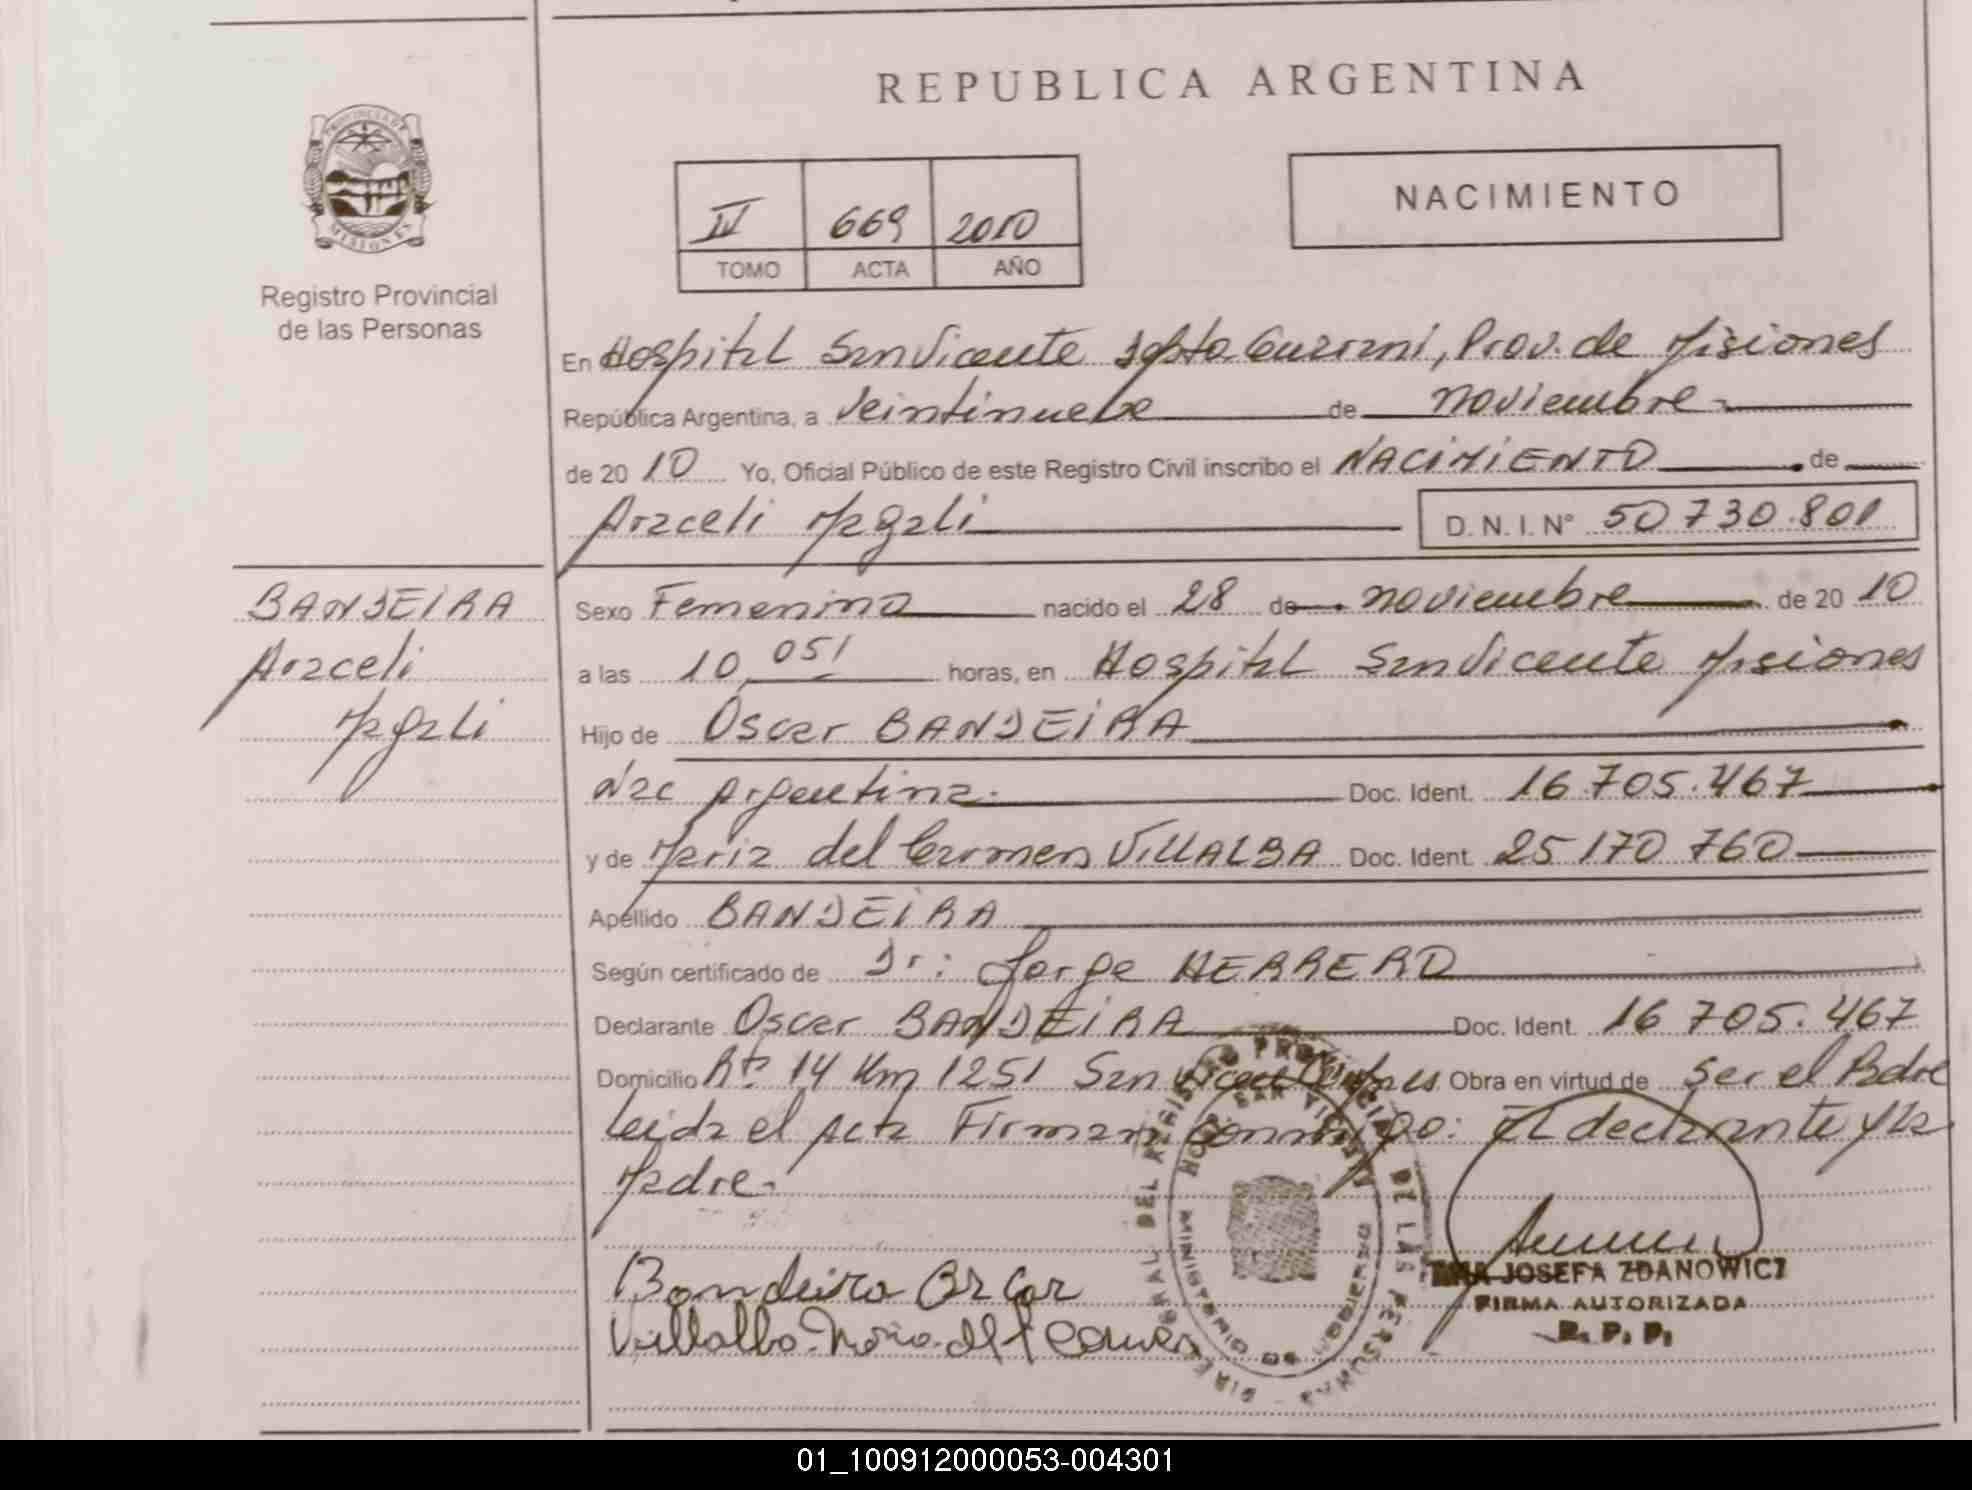 REPUBLICA ARGENTINA
PROVINCIA DE
MISIONES
Registro Provincial
de las Personas
IV 669 2010
TOMO ACTA AÑO
NACIMIENTO
En Hospital San Vicente Dpto Guaraní, Prov. de Misiones
República Argentina, a Veintinueve de noviembre
de 20 10 Yo, Oficial Público de este Registro Civil inscribo el NACIMIENTO de
Araceli Magali D. N. I. N° 50 730.801
BANDEIRA
Araceli
Magali
Sexo Femenino nacido el 28 de noviembre de 20 10
a las 10, 05' horas, en Hospital San Vicente Misiones
Hijo de Oscar BANDEIRA
Nac Argentina. Doc. Ident. 16.705.467
y de Maria del Carmen VILLALBA Doc. Ident. 25 170 760
Apellido BANDEIRA
Según certificado de Dr: Jorge HERRERO
Declarante Oscar BANDEIRA Doc. Ident. 16 705.467
Domicilio Rta 14 Km 1251 San Vicente Misiones Obra en virtud de ser el Padre
Leida el Acta Firman conmigo: El declarante y la
Madre.
Bandeira Oscar
Villalba Maria del Carmen
DIRE GRAL. DEL REGISTRO PROVINCIAL DE LAS PERSONAS
HOSP. SAN VICENTE
MINISTERIO DE GOBIERNO
JOSEFA ZDANOWICZ
FIRMA AUTORIZADA
R. P. P.
01_100912000053-004301